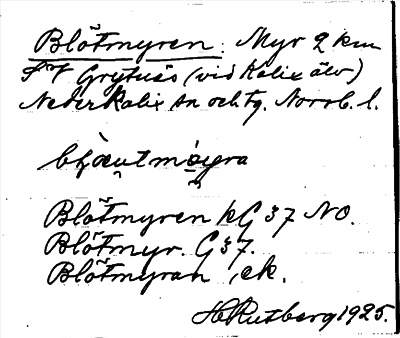 Blötmyren: Myr 2 km
SV Grytnäs (vid Kalix älv)
Nederkalix sn och tg. Norrb. l.
Blötmyren kG 37 NO.
Blötmyr. G 37.
Blötmyran, ek.
H Rutberg 1925.